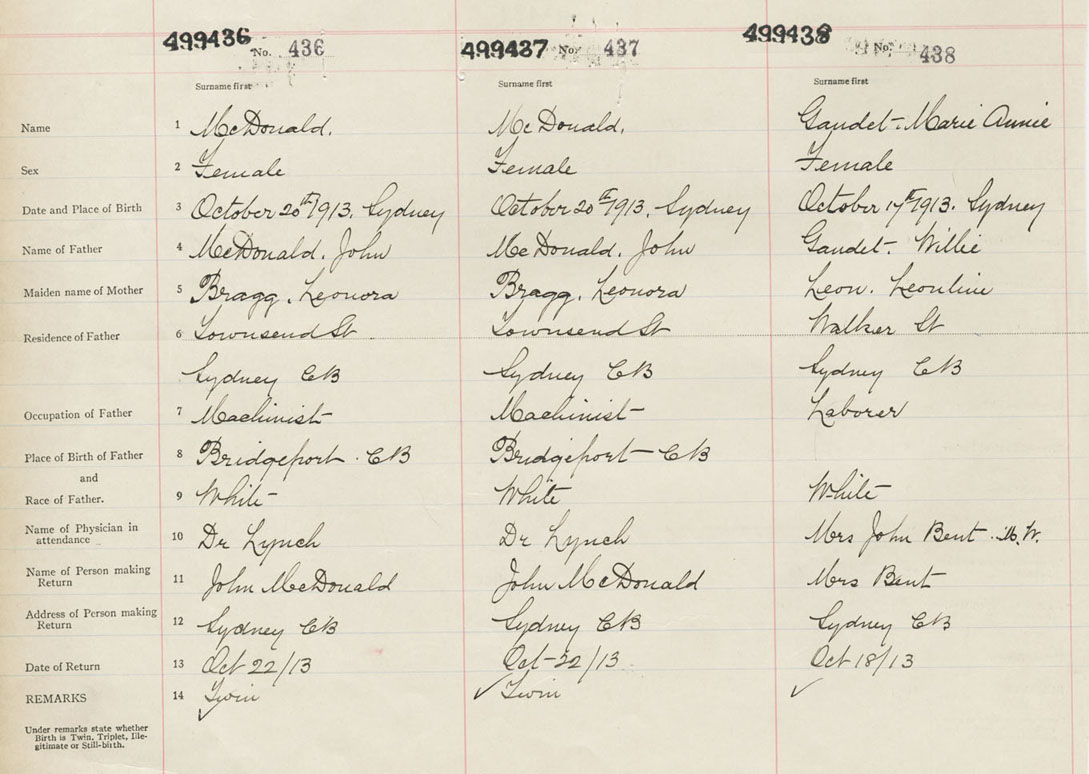 499436 No. 436 499437 No. 437 499438 No. 438
Surname first Surname first Surname first
Name 1 McDonald. McDonald. Gaudet - Marie Annie
Sex 2 Female Female Female
Date and Place of Birth 3 October 20th 1913. Sydney October 20th 1913. Sydney October 17th 1913. Sydney
Name of Father 4 McDonald. John McDonald. John Gaudet. Willie
Maiden name of Mother 5 Bragg. Leonora Bragg. Leonora Leon. Leonline
Residence of Father 6 Townsend St Townsend St Walker St
Sydney CB Sydney CB Sydney CB
Occupation of Father 7 Machinist Machinist Laborer
Place of Birth of Father 8 Bridgeport. CB Bridgeport - CB
and
Race of Father. 9 White White White
Name of Physician in
attendance 10 Dr Lynch Dr Lynch Mrs John Bent. M.W.
Name of Person making
Return 11 John McDonald John McDonald Mrs Bent
Address of Person making
Return 12 Sydney CB Sydney CB Sydney CB
Date of Return 13 Oct 22/13 Oct 22/13 Oct 18/13
REMARKS 14 Twin Twin
Under remarks state whether
Birth is Twin, Triplet, Ille-
gitimate or Still-birth.